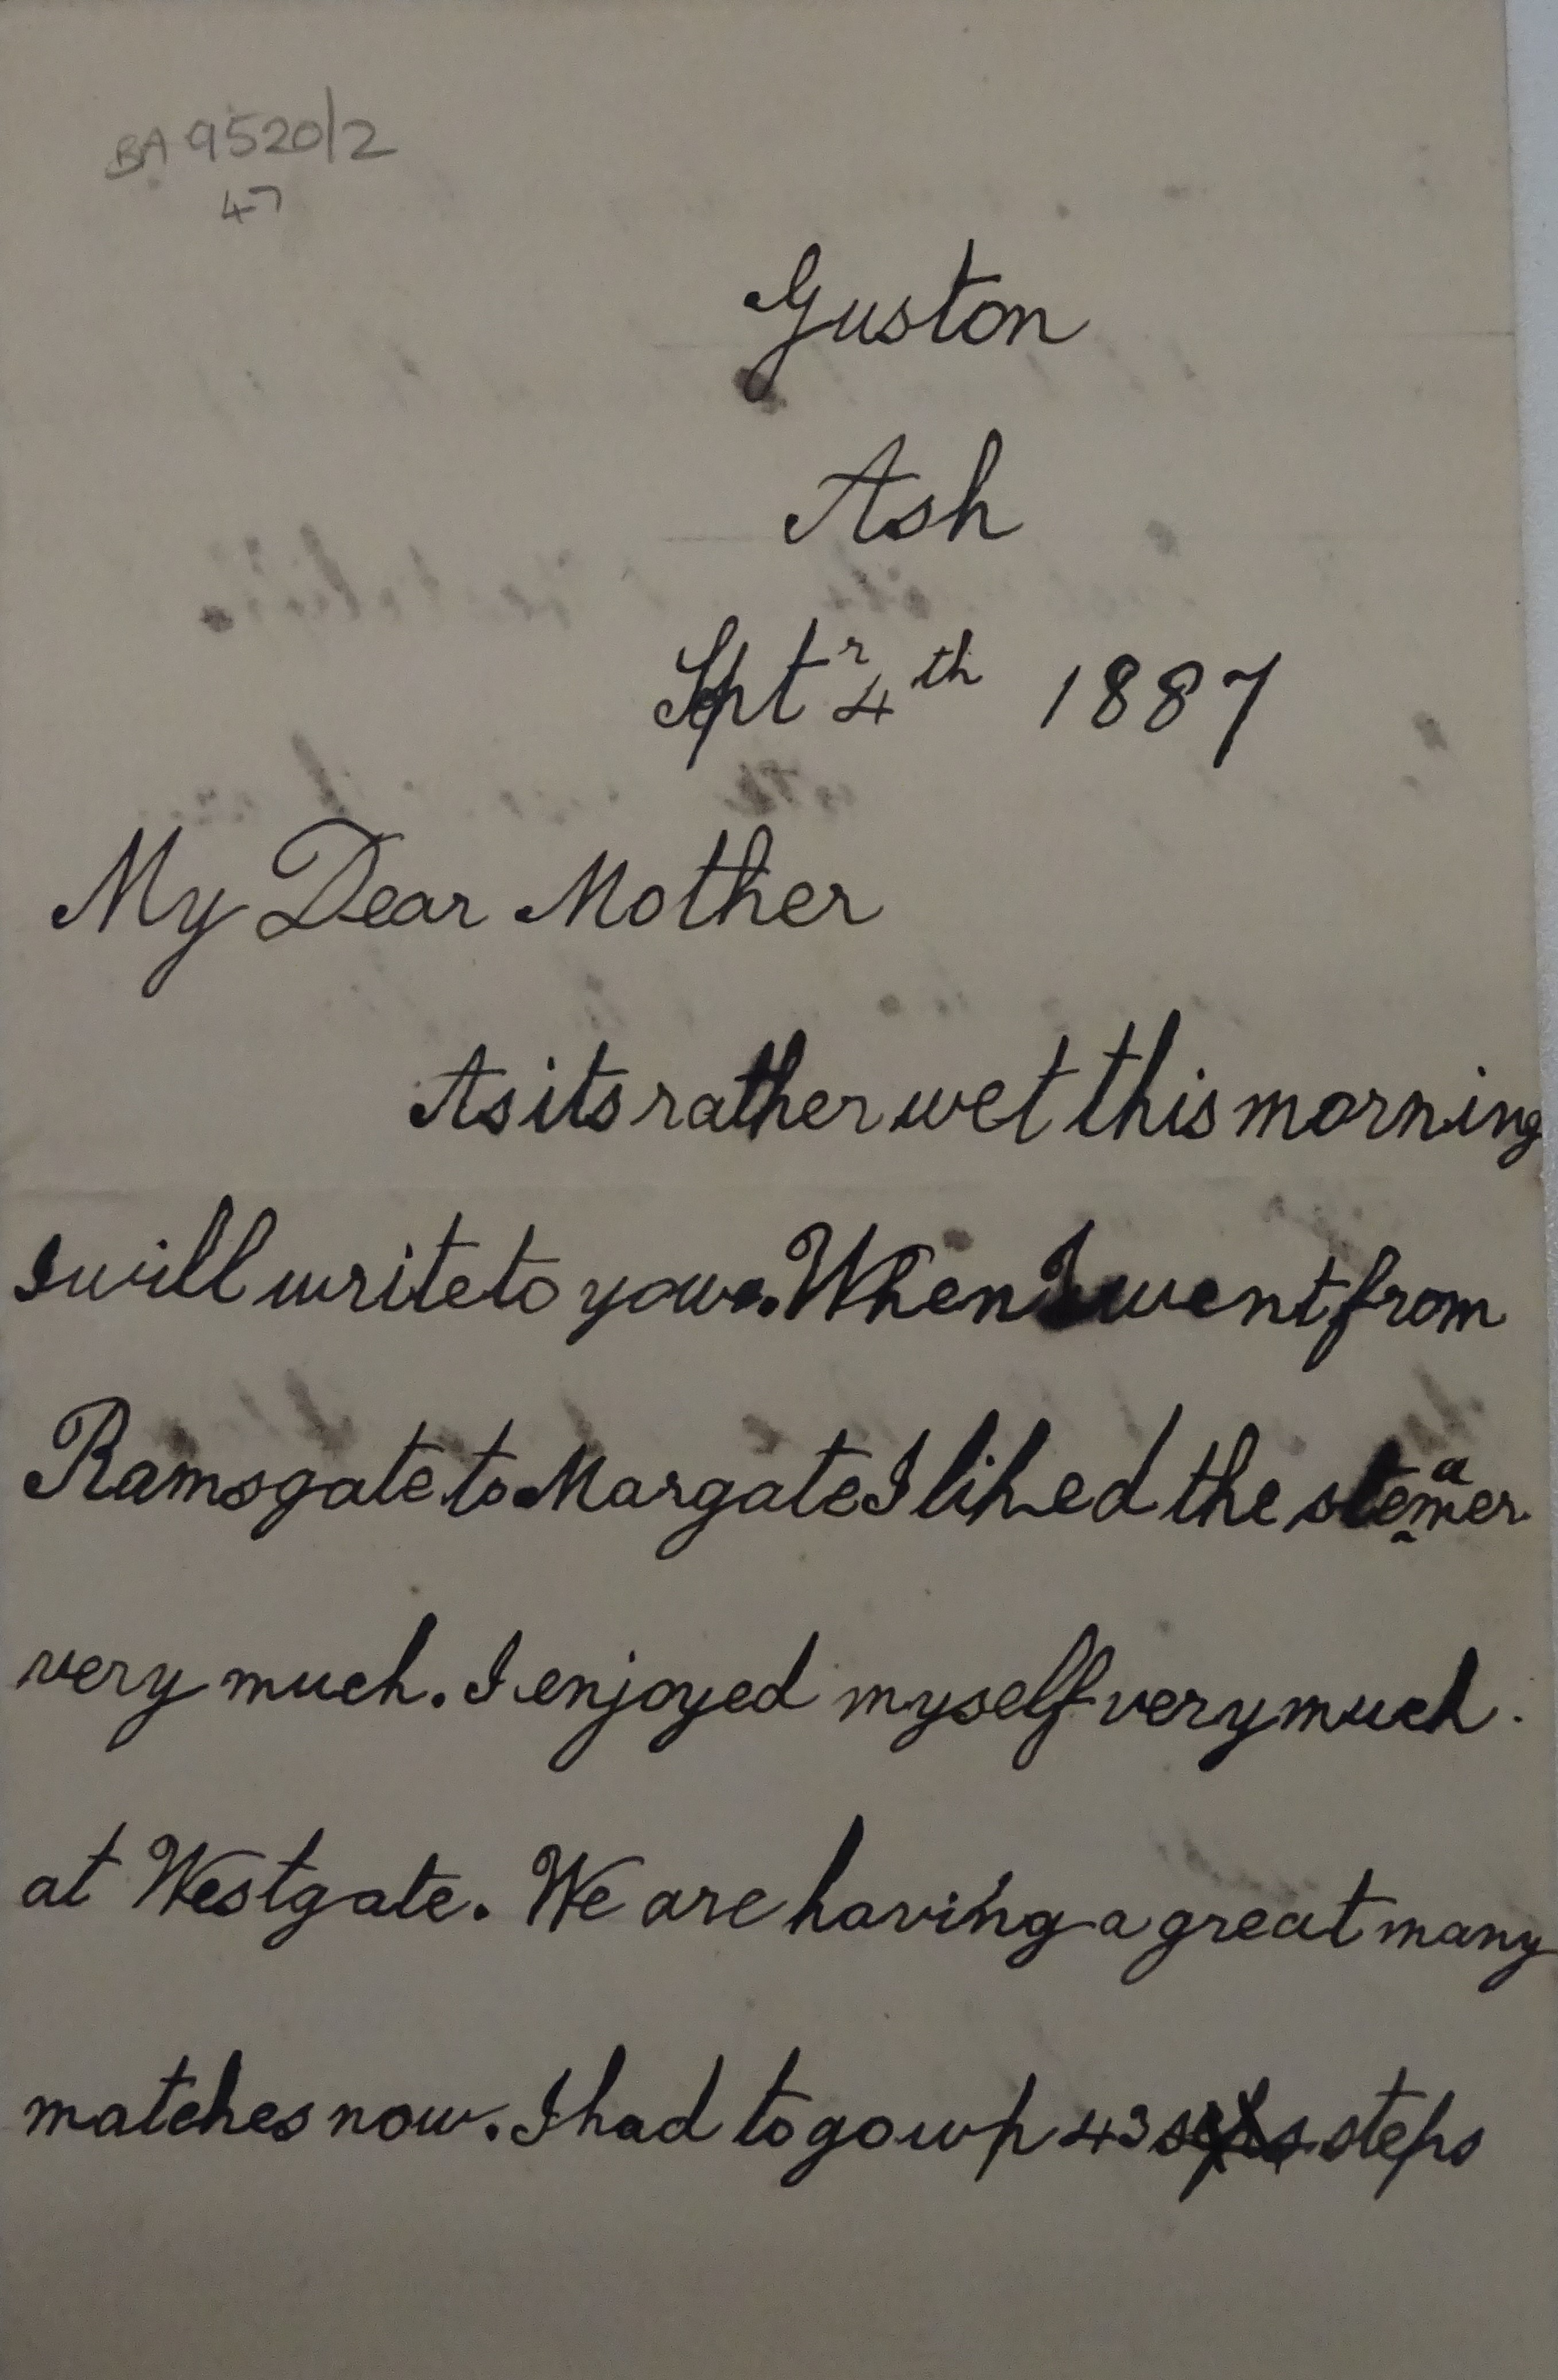 BA 9520/2
47
Guston
Ash
Septr 4th 1887
My Dear Mother
As its rather wet this morning
I will write to you. When I went from
Ramsgate to Margate I liked the steamer
very much. I enjoyed myself very much.
at Westgate. We are having a great many
matches now. I had to go up 43 steps